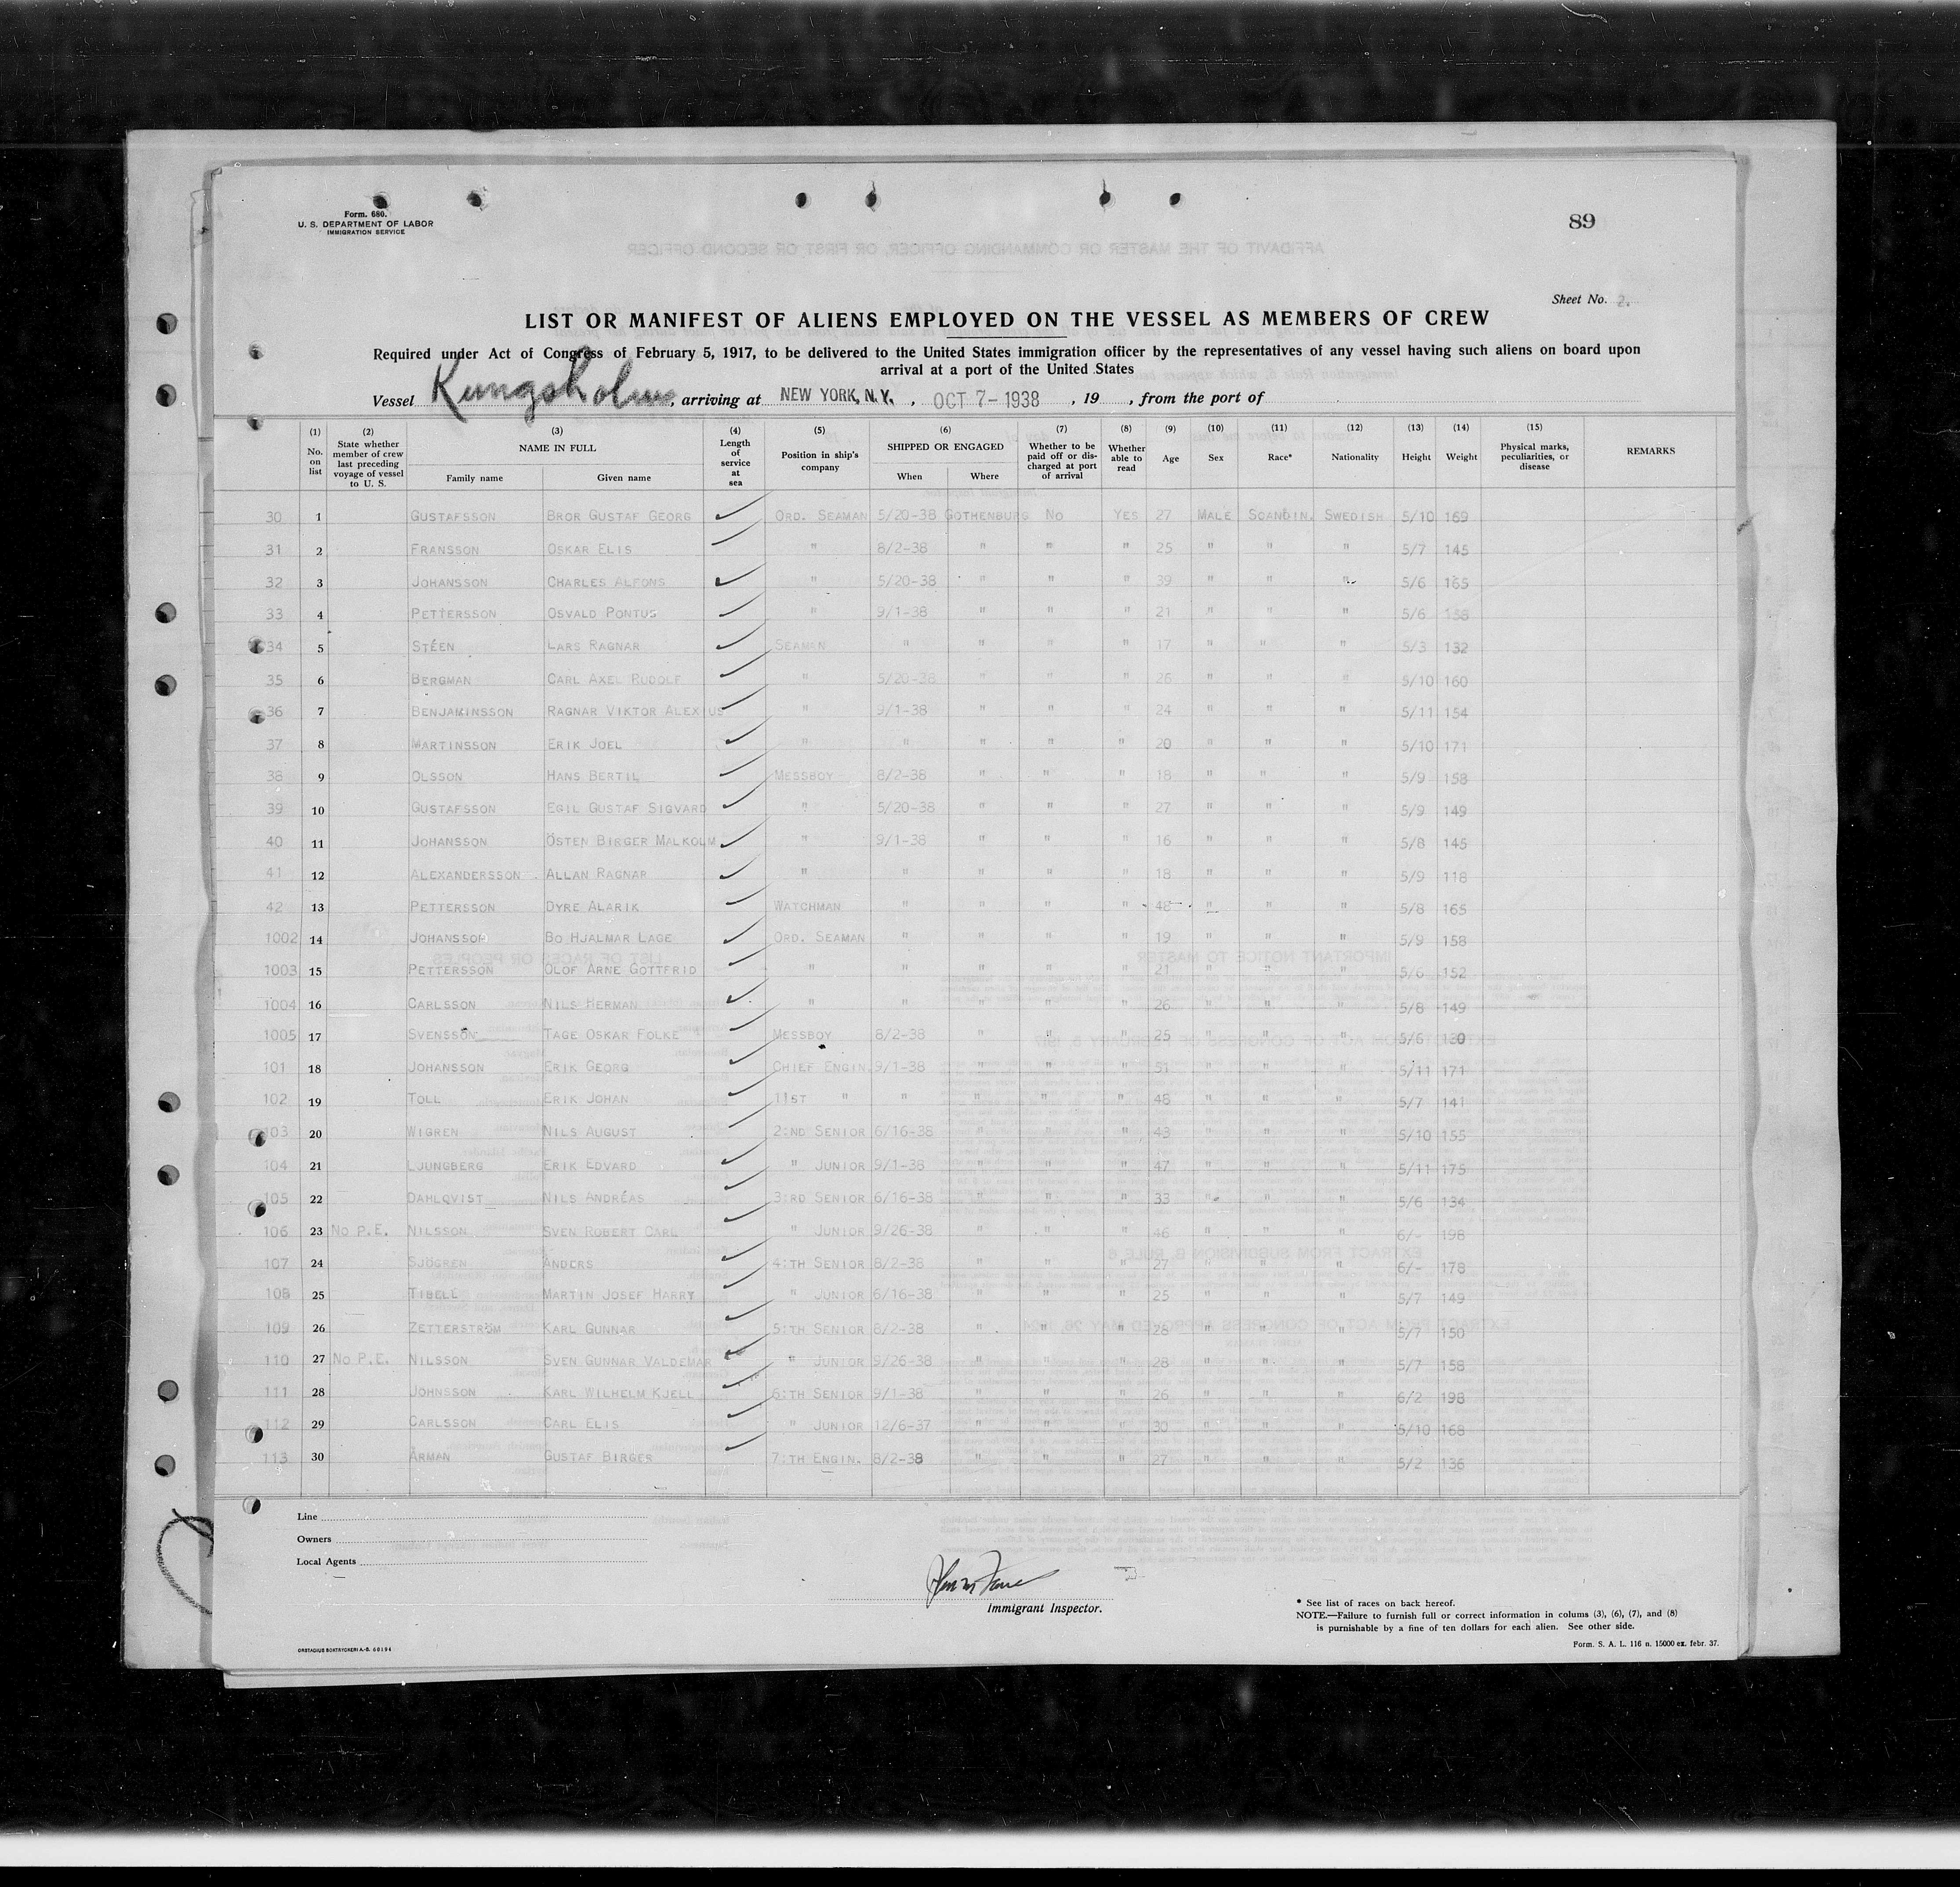 Form. 680.
U. S. DEPARTMENT OF LABOR
IMMIGRATION SERVICE
89
Sheet No. 2.
LIST OR MANIFEST OF ALIENS EMPLOYED ON THE VESSEL AS MEMBERS OF CREW
Required under Act of Congress of February 5, 1917, to be delivered to the United States immigration officer by the representatives of any vessel having such aliens on board upon
arrival at a port of the United States
Vessel Kungsholm, arriving at NEW YORK, N.Y. , OCT 7- 1938 , 19 , from the port of
(1) No. on list (2) State whether member of crew last preceding voyage of vessel to U. S. (3) NAME IN FULL Family name Given name (4) Length of service at sea (5) Position in ship's company (6) SHIPPED OR ENGAGED When Where (7) Whether to be paid off or discharged at port of arrival (8) Whether able to read (9) Age (10) Sex (11) Race* (12) Nationality (13) Height (14) Weight (15) Physical marks, peculiarities, or disease REMARKS
30 1 GUSTAFSSON BROR GUSTAF GEORG ORD. SEAMAN 5/20-38 GOTHENBURG NO YES 27 MALE SCANDIN. SWEDISH 5/10 169
31 2 FRANSSON OSKAR ELIS " 8/2-38 " " " 25 " " " 5/7 145
32 3 JOHANSSON CHARLES ALFONS " 5/20-38 " " " 39 " " " 5/6 165
33 4 PETTERSSON OSVALD PONTUS " 9/1-38 " " " 21 " " " 5/6
34 5 STÉEN LARS RAGNAR SEAMAN " " " " 17 " " " 5/3 132
35 6 BERGMAN CARL AXEL RUDOLF " 5/20-38 " " " 26 " " " 5/10 160
36 7 BENJAMINSSON RAGNAR VIKTOR ALEXIUS " 9/1-38 " " " 24 " " " 5/11 154
37 8 MARTINSSON ERIK JOEL " " " " " 20 " " " 5/10 171
38 9 OLSSON HANS BERTIL MESSBOY 8/2-38 " " " 18 " " " 5/9 158
39 10 GUSTAFSSON EGIL GUSTAF SIGVARD " 5/20-38 " " " 27 " " " 5/9 149
40 11 JOHANSSON ÖSTEN BIRGER MALKOLM " 9/1-38 " " " 16 " " " 5/8 145
41 12 ALEXANDERSSON ALLAN RAGNAR " " " " " 18 " " " 5/9 118
42 13 PETTERSSON DYRE ALARIK WATCHMAN " " " " 48 " " " 5/8 165
1002 14 JOHANSSON BO HJALMAR LAGE ORD. SEAMAN " " " " 19 " " " 5/9 158
1003 15 PETTERSSON OLOF ARNE GOTTFRID " " " " " 21 " " " 5/6 152
1004 16 CARLSSON NILS HERMAN " " " " " 26 " " " 5/8 149
1005 17 SVENSSON TAGE OSKAR FOLKE MESSBOY 8/2-38 " " " 25 " " " 5/6 130
101 18 JOHANSSON ERIK GEORG CHIEF ENGIN. 9/1-38 " " " 51 " " " 5/11 171
102 19 TOLL ERIK JOHAN 1IST " " " " " 48 " " " 5/7 141
103 20 WIGREN NILS AUGUST 2:ND SENIOR 6/16-38 " " " 43 " " " 5/10 155
104 21 LJUNGBERG ERIK EDVARD " JUNIOR 9/1-38 " " " 47 " " " 5/11 175
105 22 DAHLQVIST NILS ANDRÉAS 3:RD SENIOR 6/16-38 " " " 33 " " " 5/6 134
106 23 NO P.E. NILSSON SVEN ROBERT CARL " JUNIOR 9/26-38 " " " 46 " " " 6/- 198
107 24 SJÖGREN ANDERS 4:TH SENIOR 8/2-38 " " " 27 " " " 6/- 178
108 25 TIBELL MARTIN JOSEF HARRY " JUNIOR 6/16-38 " " " 25 " " " 5/7 149
109 26 ZETTERSTRÖM KARL GUNNAR 5:TH SENIOR 8/2-38 " " " 28 " " " 5/7 150
110 27 NO P.E. NILSSON SVEN GUNNAR VALDEMAR " JUNIOR 9/26-38 " " " 28 " " " 5/7 158
111 28 JOHNSSON KARL WILHELM KJELL 6:TH SENIOR 9/1-38 " " " 26 " " " 6/2 198
112 29 CARLSSON CARL ELIS " JUNIOR 12/6-37 " " " 30 " " " 5/10 168
113 30 ÅRMAN GUSTAF BIRGER 7:TH ENGIN. 8/2-38 " " " 27 " " " 5/2 136
Line
Owners
Local Agents
Immigrant Inspector.
* See list of races on back hereof.
NOTE.—Failure to furnish full or correct information in colums (3), (6), (7), and (8)
is punishable by a fine of ten dollars for each alien. See other side.
ORSTADIUS BOKTRYCKERI A.-B. 60194
Form. S. A. L. 116 n. 15000 ex. febr. 37.